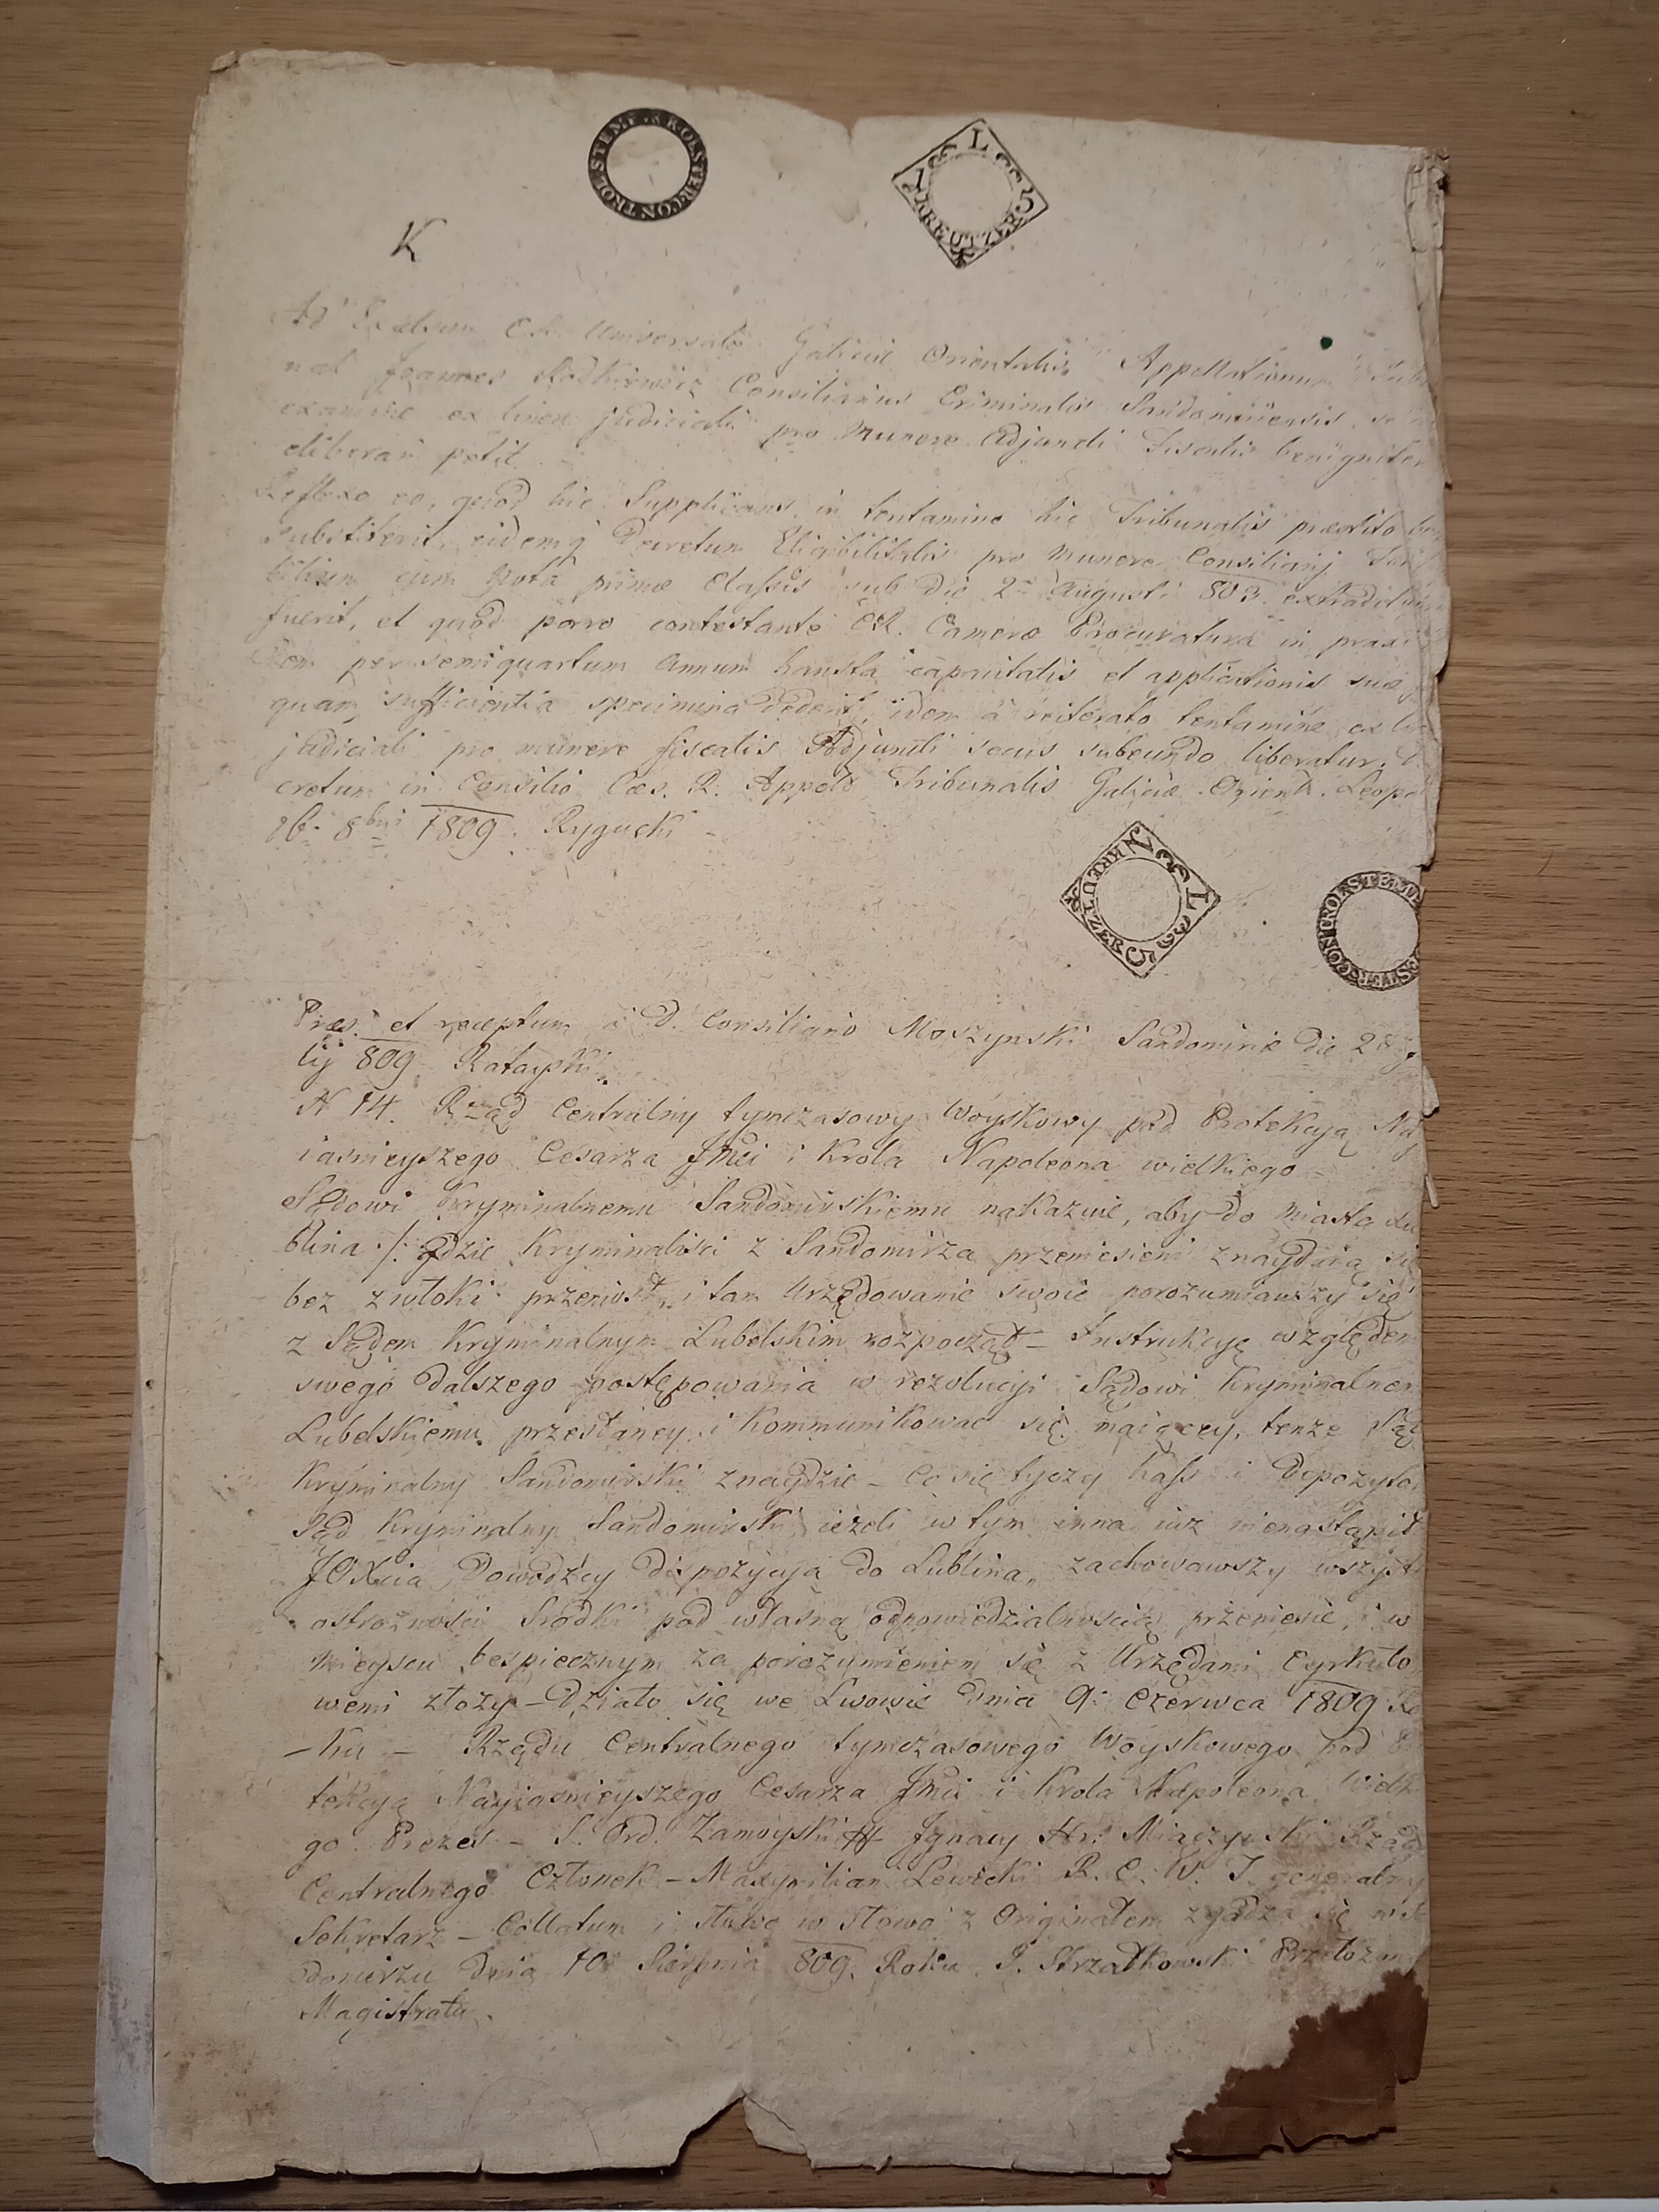 STEMP. K. KROL. STER. CONTROL
L
15 KREUTZER
K
Ad Excelsum C.R. Universale Galiciae Orientalis Appellationum
nal Joannes Consiliarius Criminalis Sandomiriensis
examine ex linea judiciali pro Munere Adjuncti Fiscalis benigniter
eliberari petit
Reflexo eo, quod hic Supplicans in tentamine hic Tribunalis praestito
substiterit, eidemq Decretum Eligibilitatis pro Munere Consiliarij
cum Nota primae Classis sub die 2a Augusti 803. extraditum
fuerit, et quod porro contestante CR. Camerae Procuratura in praxi
per semiquartum Annum hausta capacitatis et applicationis suae
quam sufficientia specimina dederit, idem a reiterato tentamine ex
judiciali pro munere fiscalis Adjuncti secus subeundo liberatur.
cretum in Consilio Caes. R. Appelo Tribunalis Galiciae Orient. Leopo
8bris 1809. Rygucki
L
15 KREUTZER
STER. CONTROL. STEM
Praes. et receptum a D. Consiliario Moszynski Sandomiriae die 28
lij 809.
N 14. Rząd Centralny tymczasowy Woyskowy pod Protekcyą Nay
iasnieyszego Cesarza Jmci i Krola Napoleona wielkiego
Sądowi Kryminalnemu Sandomirskiemu nakazuie, aby do Miasta Lu
blina ./. gdzie Kryminalisci z Sandomirza przeniesieni znayduią się
bez zwłoki przeniosł, i tam Urzędowanie swoie porozumiawszy się
z Sądem Kryminalnym Lubelskim rozpoczął – Instrukcyę względem
swego dalszego postępowania w rezolucyi Sądowi Kryminalnem
Lubelskiemu przesłaney i kommunikować się maiącey, tenże Sąd
Kryminalny Sandomirski znaydzie – Co się tyczy Kass i Depozyto
Sąd Kryminalny Sandomirski ieżeli w tym inna iuż nienastąpił
JOXcia Dowodźcy dispozycyą do Lublina, zachowawszy wszyst
ostrożności srodki pod własną odpowiedzialnoscią przeniesie, i w
Mieyscu bespiecznym za porozumieniem się z Urzędami Cyrkuło
wemi złoży – Działo się we Lwowie dnia 9. Czerwca 1809 Ro
– ku – Rządu Centralnego tymczasowego Woyskowego pod
tekcyą Nayiasnieyszego Cesarza Jmci i Krola Napoleona Wielk
go. Prezes – S. Ord. Zamoyski Ignacy Hr. Miączyński Rządu
Centralnego Członek – Maxymilian Lewicki R. C. W. T. generalny
Sekretarz – Collatum i słowo w słowo z Originałem zgadza się
domirzu Dnia 10 Sierpnia 809. Roku J. Strzałkowski Przełożony
Magistratu.